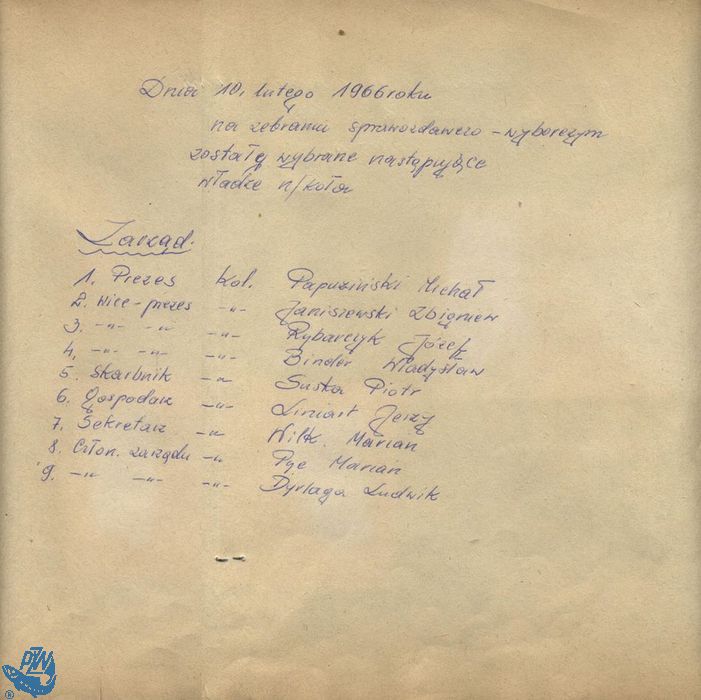 Dnia 10. lutego 1966 roku
na zebraniu sprawozdawczo-wyborczym
zostałę wybrane następujące
władze n/koła
Zarząd.
1. Prezes kol. Papuziński Michał
2. Wice-prezes -"- Janiszewski Zbigniew
3. -"- -"- -"- Rybarczyk Józef
4. -"- -"- -"- Binder Władysław
5. Skarbnik -"- Suska Piotr
6. Gospodarz -"- Liniart Jerzy
7. Sekretarz -"- Wilk. Marian
8. Człon. zarządu -"- Pyc Marian
9. -"- -"- -"- Dyrlaga Ludwik
PZW
®